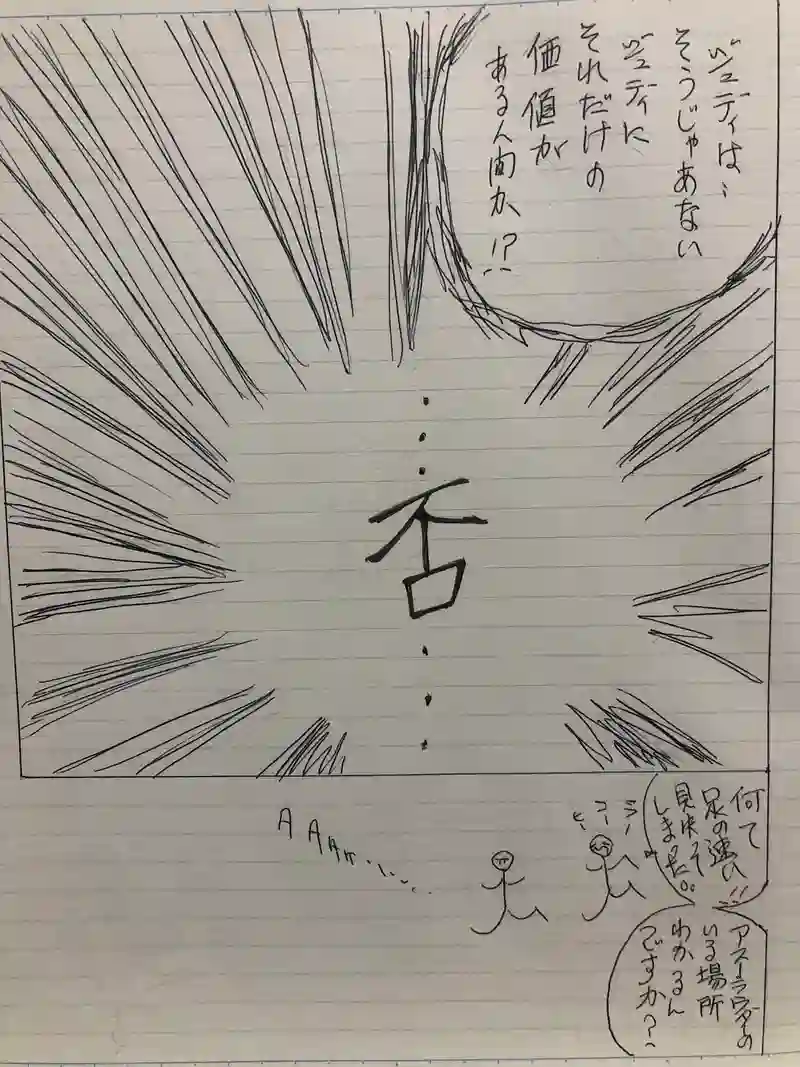 ジュディは…
そうじゃあない
ジュディに
それだけの
価値が
ある人間か!?
…否…
何て
足の速い!!
見失って
しまった。
アスーラウダーの
いる場所
わかるん
ですか?
コー
ヒー
A A A